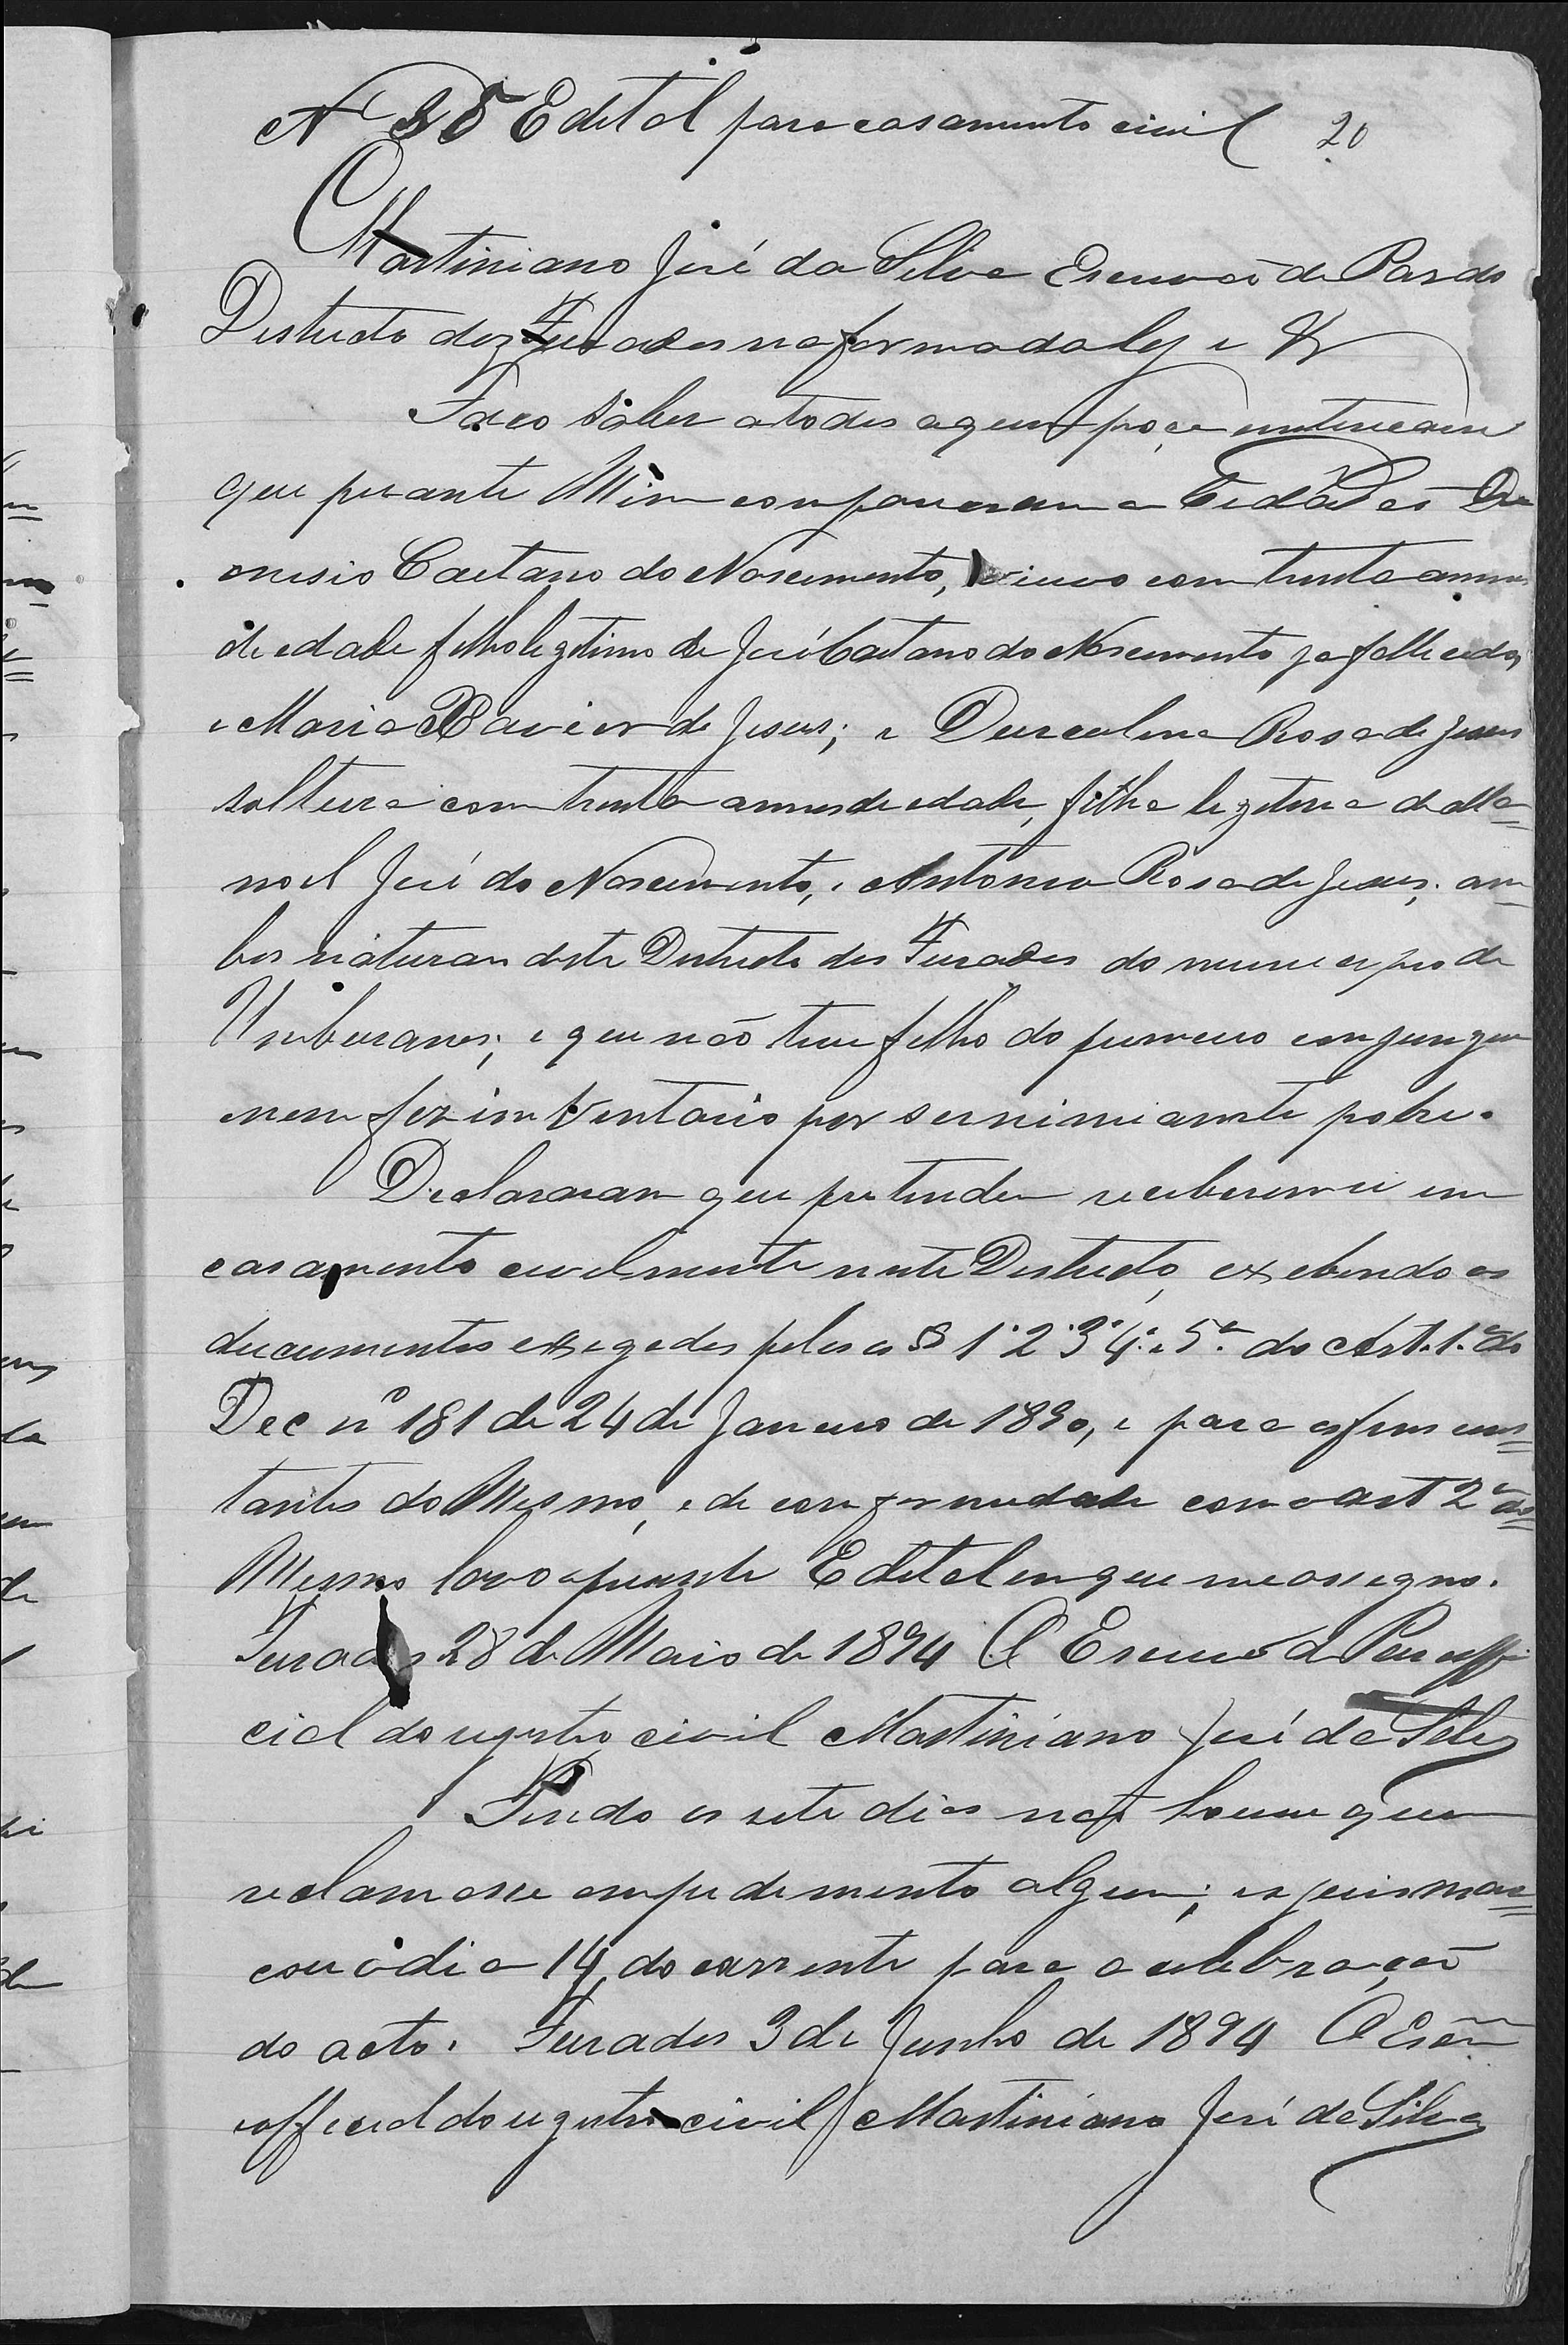 N 35 Edital para casamento civil 20
Martiniano José da Silva Escrivão de Paz do
Destricto dos Furados na forma da ley e &
Faço saber a todos a quem poça enterecar
que perante Mim compareceram o Cidadão De
onisio Caetano do Nascimento, viuvo com trinta annos
de edade filho legitimo de José Caetano do Nascimento ja fallecido,
e Maria Xavier de Jesus; e Durcolina Rosa de Jesus
solteira com trinta annos de edade, filha legitima de Ma=
noel José do Nascimento, e Antonia Rosa de Jesus, am=
bos naturan deste Destricto dos Furados do municipio de
Uruburanas; e que não teve filho do primeiro conjunge
nem fez inventario por ser nimiamente pobre.
Declararam que pretendem receberem-se em
casamento civilmente neste Destricto, exebindo os
documentos exegedos pelos os § 1º 2º 3º 4º e 5º do Art. 1º do
Dec nº 181 de 24 de Janeiro de 1890, e para os fins cons=
tantes do Mesmo, e de comformidade com o art 2º do=
Mesmo lavro o presente Edital em que me assegno.
Furados 28 de Maio de 1894 O Escrivão de Paz offi
cial do registro civil Martiniano José da Silva
Findo os sete dias não houve quem
reclamasse empedimento algum; o juis mar=
cou o dia 14 do corrente para a celebração
do acto. Furados 3 de Junho de 1894 O Escrᵐ
official do registro civil Martiniano José da Silva